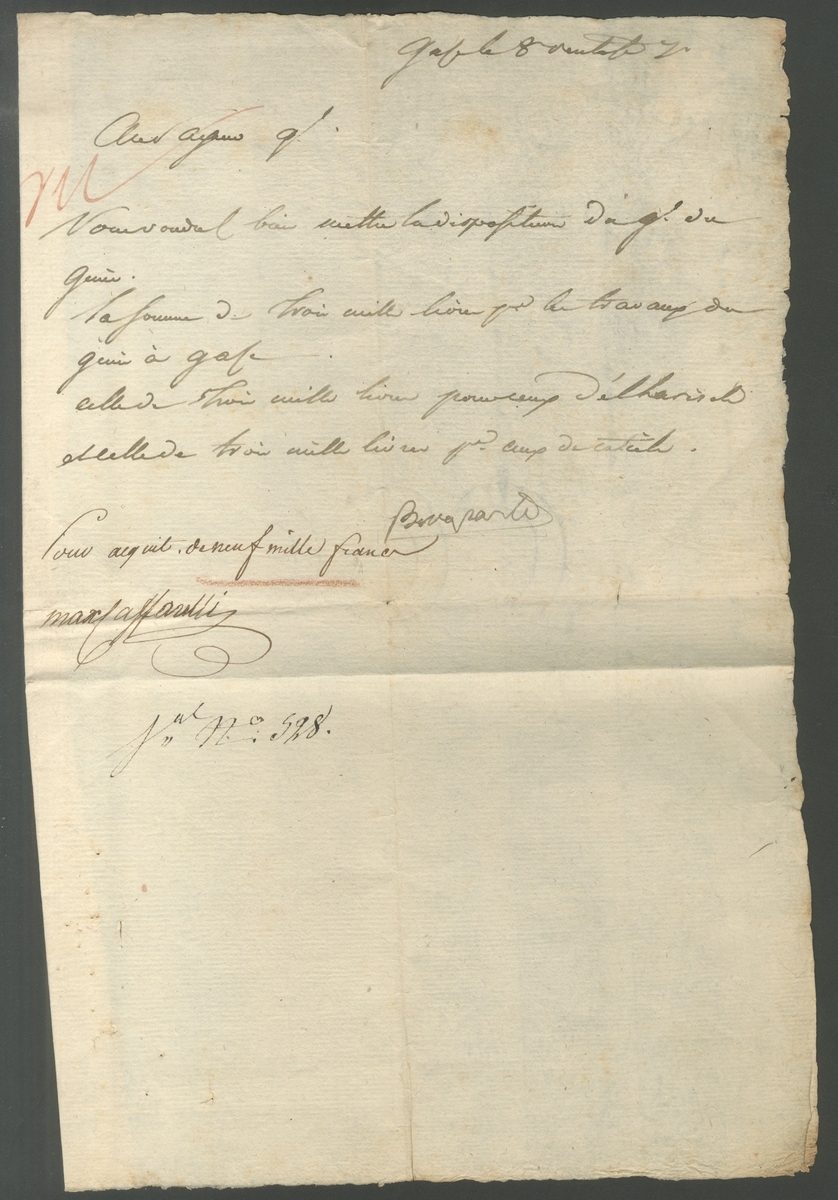 Gase le 8 ventose 7.
Au payeur gl.
Vous voudrez bien mettre la disposition du gl. du
genie.
la somme de trois mille livres pr les travaux du
genie à gase
celle de trois mille livres pour ceux d'élharisch
et celle de trois mille livres pr. ceux de catieh.
Bonaparte
Pour acquit. de neuf mille francs
max Caffarelli
Jnal No. 528.